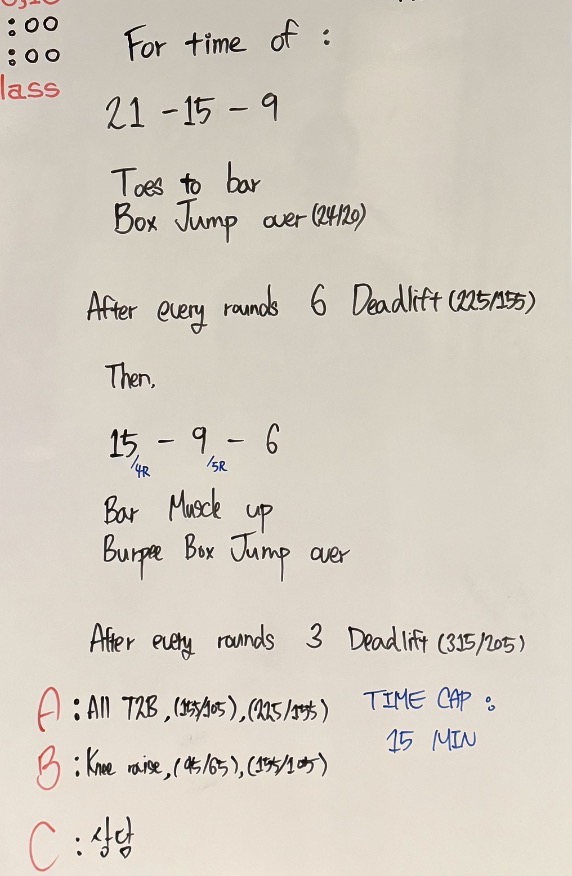 :00
:00
lass
For time of :
21 - 15 - 9
Toes to bar
Box Jump over (24/20)
After every rounds 6 Deadlift (225/155)
Then,
15 - 9 - 6
/4R /5R
Bar Muscle up
Burpee Box Jump over
After every rounds 3 Deadlift (315/205)
A : All T2B, (155/105), (225/155)
TIME CAP :
15 MIN
B : Knee raise, (95/65), (155/105)
C : 상담